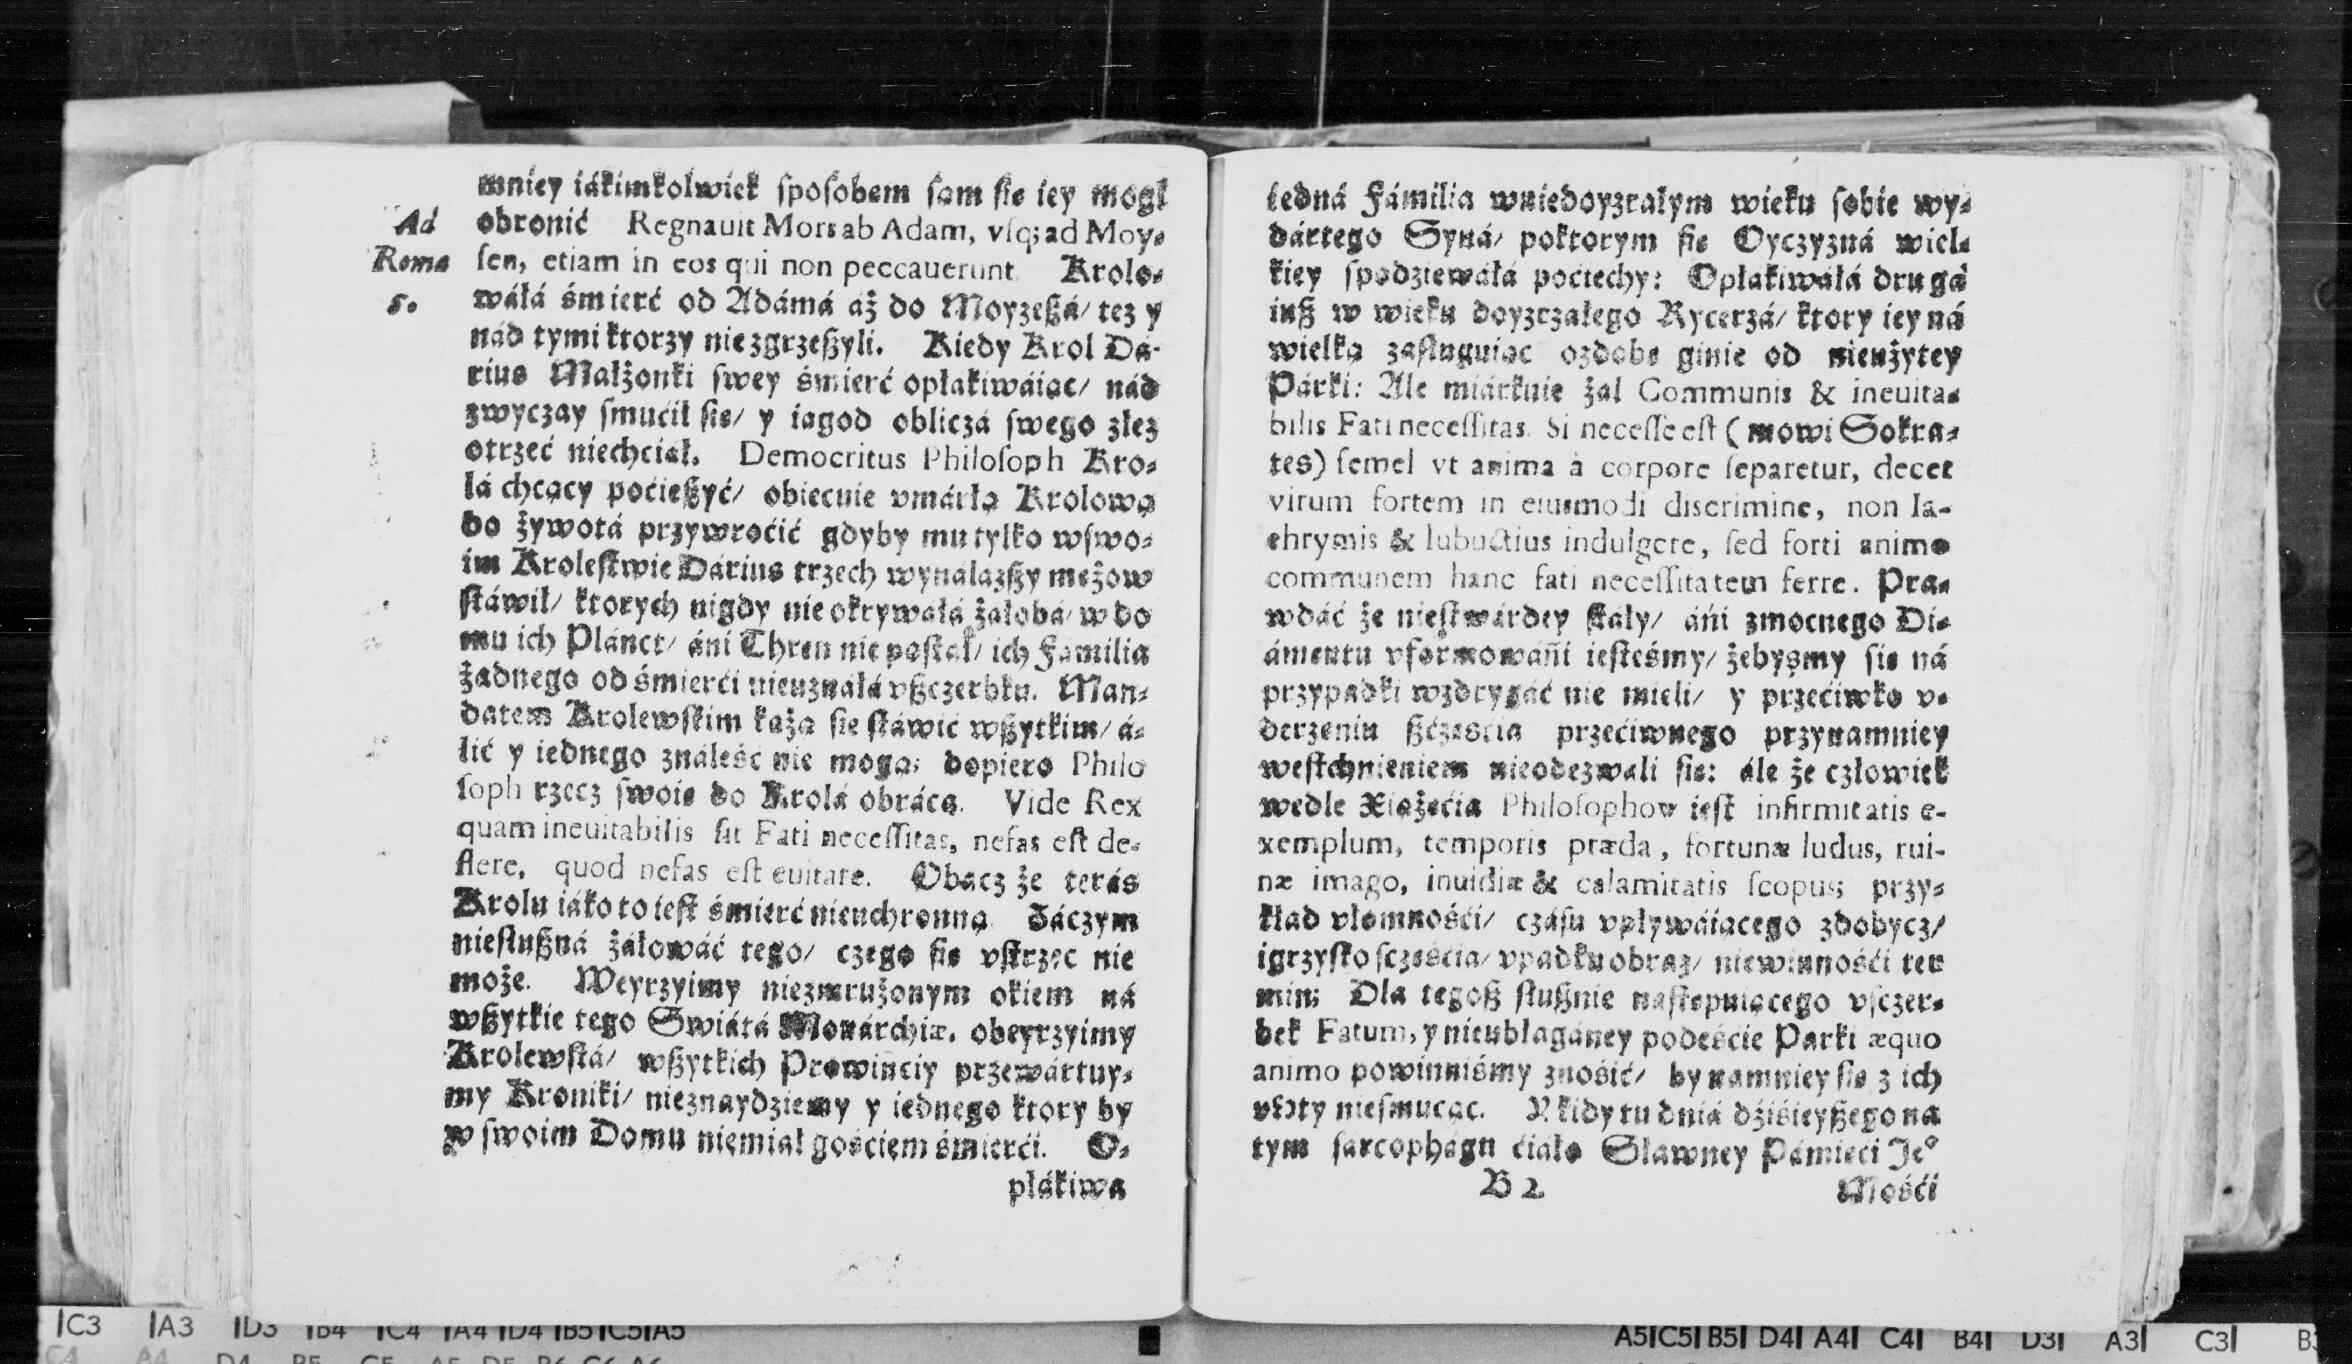 mniey iákimkolwiek ſpoſobem ſam ſie iey mogł
Ad obronić Regnauit Mors ab Adam, vſq; ad Moy-
Roma ſen, etiam in eos qui non peccauerunt Krolo-
5. wáłá śmierć od Adámá áż do Moyzeßá/ tez y
nád tymi ktorzy nie zgrzeßyli. Kiedy Krol Dá-
rius Małżonki ſwey śmierć opłakiwáiąc/ nád
zwyczay ſmućił ſie/ y iagod obliczá ſwego złez
otrzeć niechciał. Democritus Philoſoph Kro-
lá chcący poćießyć/ obiecuie vmárłą Krolową
do żywotá przywroćić gdyby mu tylko wſwo-
im Kroleſtwie Dárius trzech wynalazßy mężow
ſtáwił/ ktorych nigdy nie okrywałá żałobá/ w do
mu ich Plánct/ áni Thren nie poſtał/ ich Familia
żadnego od śmierći nieuznáłá vßczerbku. Man-
datem Krolewſkim każą ſie ſtáwić wßytkim/ á-
lić y iednego ználeść nie mogą; dopiero Philo
ſoph rzecz ſwoię do Krolá obráca. Vide Rex
quam ineuitabilis ſit Fati neceſſitas, nefas eſt de-
flere, quod nefas eſt euitare. Obacz że terás
Krolu iáko to ieſt śmierć nieuchronna záczym
nieſłußná żáłowáć tego/ czego ſie vſtrzec nie
może. Weyrzyimy niezmrużonym okiem ná
wßytkie tego Swiátá Monárchiæ, obeyrzyimy
Krolewſtá/ wßytkich Prowinciy przewártuy-
my Kroniki/ nieznaydziemy y iednego ktory by
w ſwoim Domu niemiał gościem śmierći. O-
płákiwa
iedná Fámilia wniedoyzrałym wieku ſobie wy-
dártego Syná/ poktorym ſie Oyczyzná wiel-
kiey ſpodziewáłá poćiechy: Opłakiwáłá druga
iuß w wieku doyzrzałego Rycerzá/ ktory iey ná
wielką zaſługuiąc ozdobę ginie od nieużytey
Párki: Ale miárkuie żal Communis & ineuita-
bilis Fati neceſſitas. Si neceſſe eſt (mowi Sokra-
tes) ſemel vt anima à corpore ſeparetur, decet
virum fortem in eiusmodi discrimine, non la-
chrymis & lubuctius indulgere, ſed forti animo
communem hanc fati neceſſitatem ferre. Pra-
wdáć że nieſtwárdey ſkáły/ áńi zmocnego Di-
ámentu vformowáńi ieſteśmy/ żebyśmy ſie ná
przypadki wzdrygáć nie mieli/ y przećiwko v-
derzeniu ßćzęśćia przećiwnego przynamniey
weſtchnieniem nieodezwali ſie: ále że człowiek
wedle Xiążęćia Philoſophow ieſt infirmitatis e-
xemplum, temporis præda, fortunæ ludus, rui-
næ imago, inuidiæ & calamitatis ſcopus; przy-
kład vłomnośći/ czáſu vpływáiącego zdobycz/
igrzyſko ſczęścia/ vpadku obraz/ niewinnośći ter
min; Dla tegoß ſłußnie naſtępuiącego vſczer-
bek Fatum, y nieubłagáney podeście Parki æquo
animo powinniśmy znośić/ by namniey ſie z ich
nieſmucąc. Y kidy tu dniá dźiśieyßego na
tym ſarcophágu ćiało Sławney Pámięći Je°
B 2 Mośći
C3 A3 D3 B4 C4 A4 D4 B5 C5 A5
A5 C5 B5 D4 A4 C4 B4 D3 A3 C3